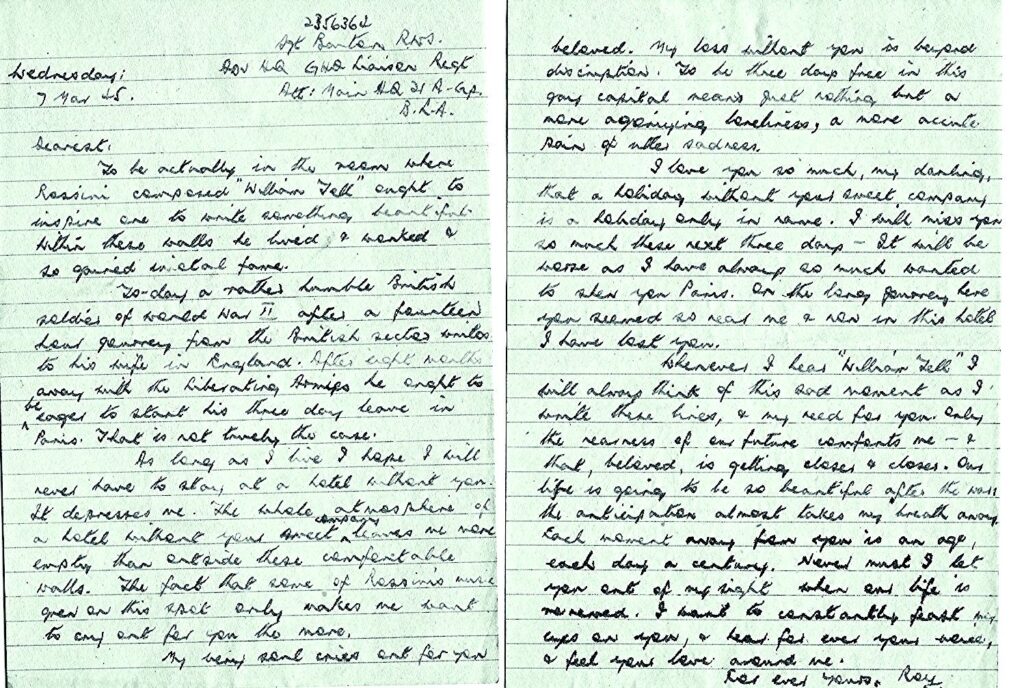 2356362
Sgt Bantan RWS.
Wednesday: Adv HQ GHQ Liaison Regt
7 Mar 45. Att: Main HQ 21 A-Grp.
B.L.A.
Dearest:
To be actually in the room where
Rossini composed "William Tell" ought to
inspire one to write something beautiful.
Within these walls he lived, & worked &
so gained instant fame.
To-day a rather humble British
soldier of World War II after a fourteen
hour journey from the British sector writes
to his wife in England. After eight months
away with the Liberating Armies he ought to
be eager to start his three day leave in
Paris. That is not truely the case.
As long as I live I hope I will
never have to stay at a hotel without you.
It depresses me. The whole atmosphere of
a hotel without your sweet company leaves me more
empty than outside these comfortable
walls. The fact that some of Rossini's music
grew on this spot only makes me want
to cry out for you the more.
My being soul cries out for you
beloved. My loss without you is beyond
discription. To be three days free in this
gay capital means just nothing but a
more agonizing loneliness, a more accute
pain of utter sadness.
I love you so much, my darling,
that a holiday without your sweet company
is a holiday only in name. I will miss you
so much these next three days – It will be
worse as I have always so much wanted
to shew you Paris. On the long journey here
you seemed so near me & now in this hotel
I have lost you.
Whenever I hear "William Tell" I
will always think of this sad moment as I
write these lines, & my need for you. Only
the nearness of our future comforts me – &
that, beloved, is getting closer & closer. Our
life is going to be so beautiful after the war
the anticipation almost takes my breath away.
Each moment away from you is an age,
each day a century. Never must I let
you out of my sight when our life is
renewed. I want to constantly feast my
eyes on you, & hear for ever your voice,
& feel your love around me.
For ever yours, Roy